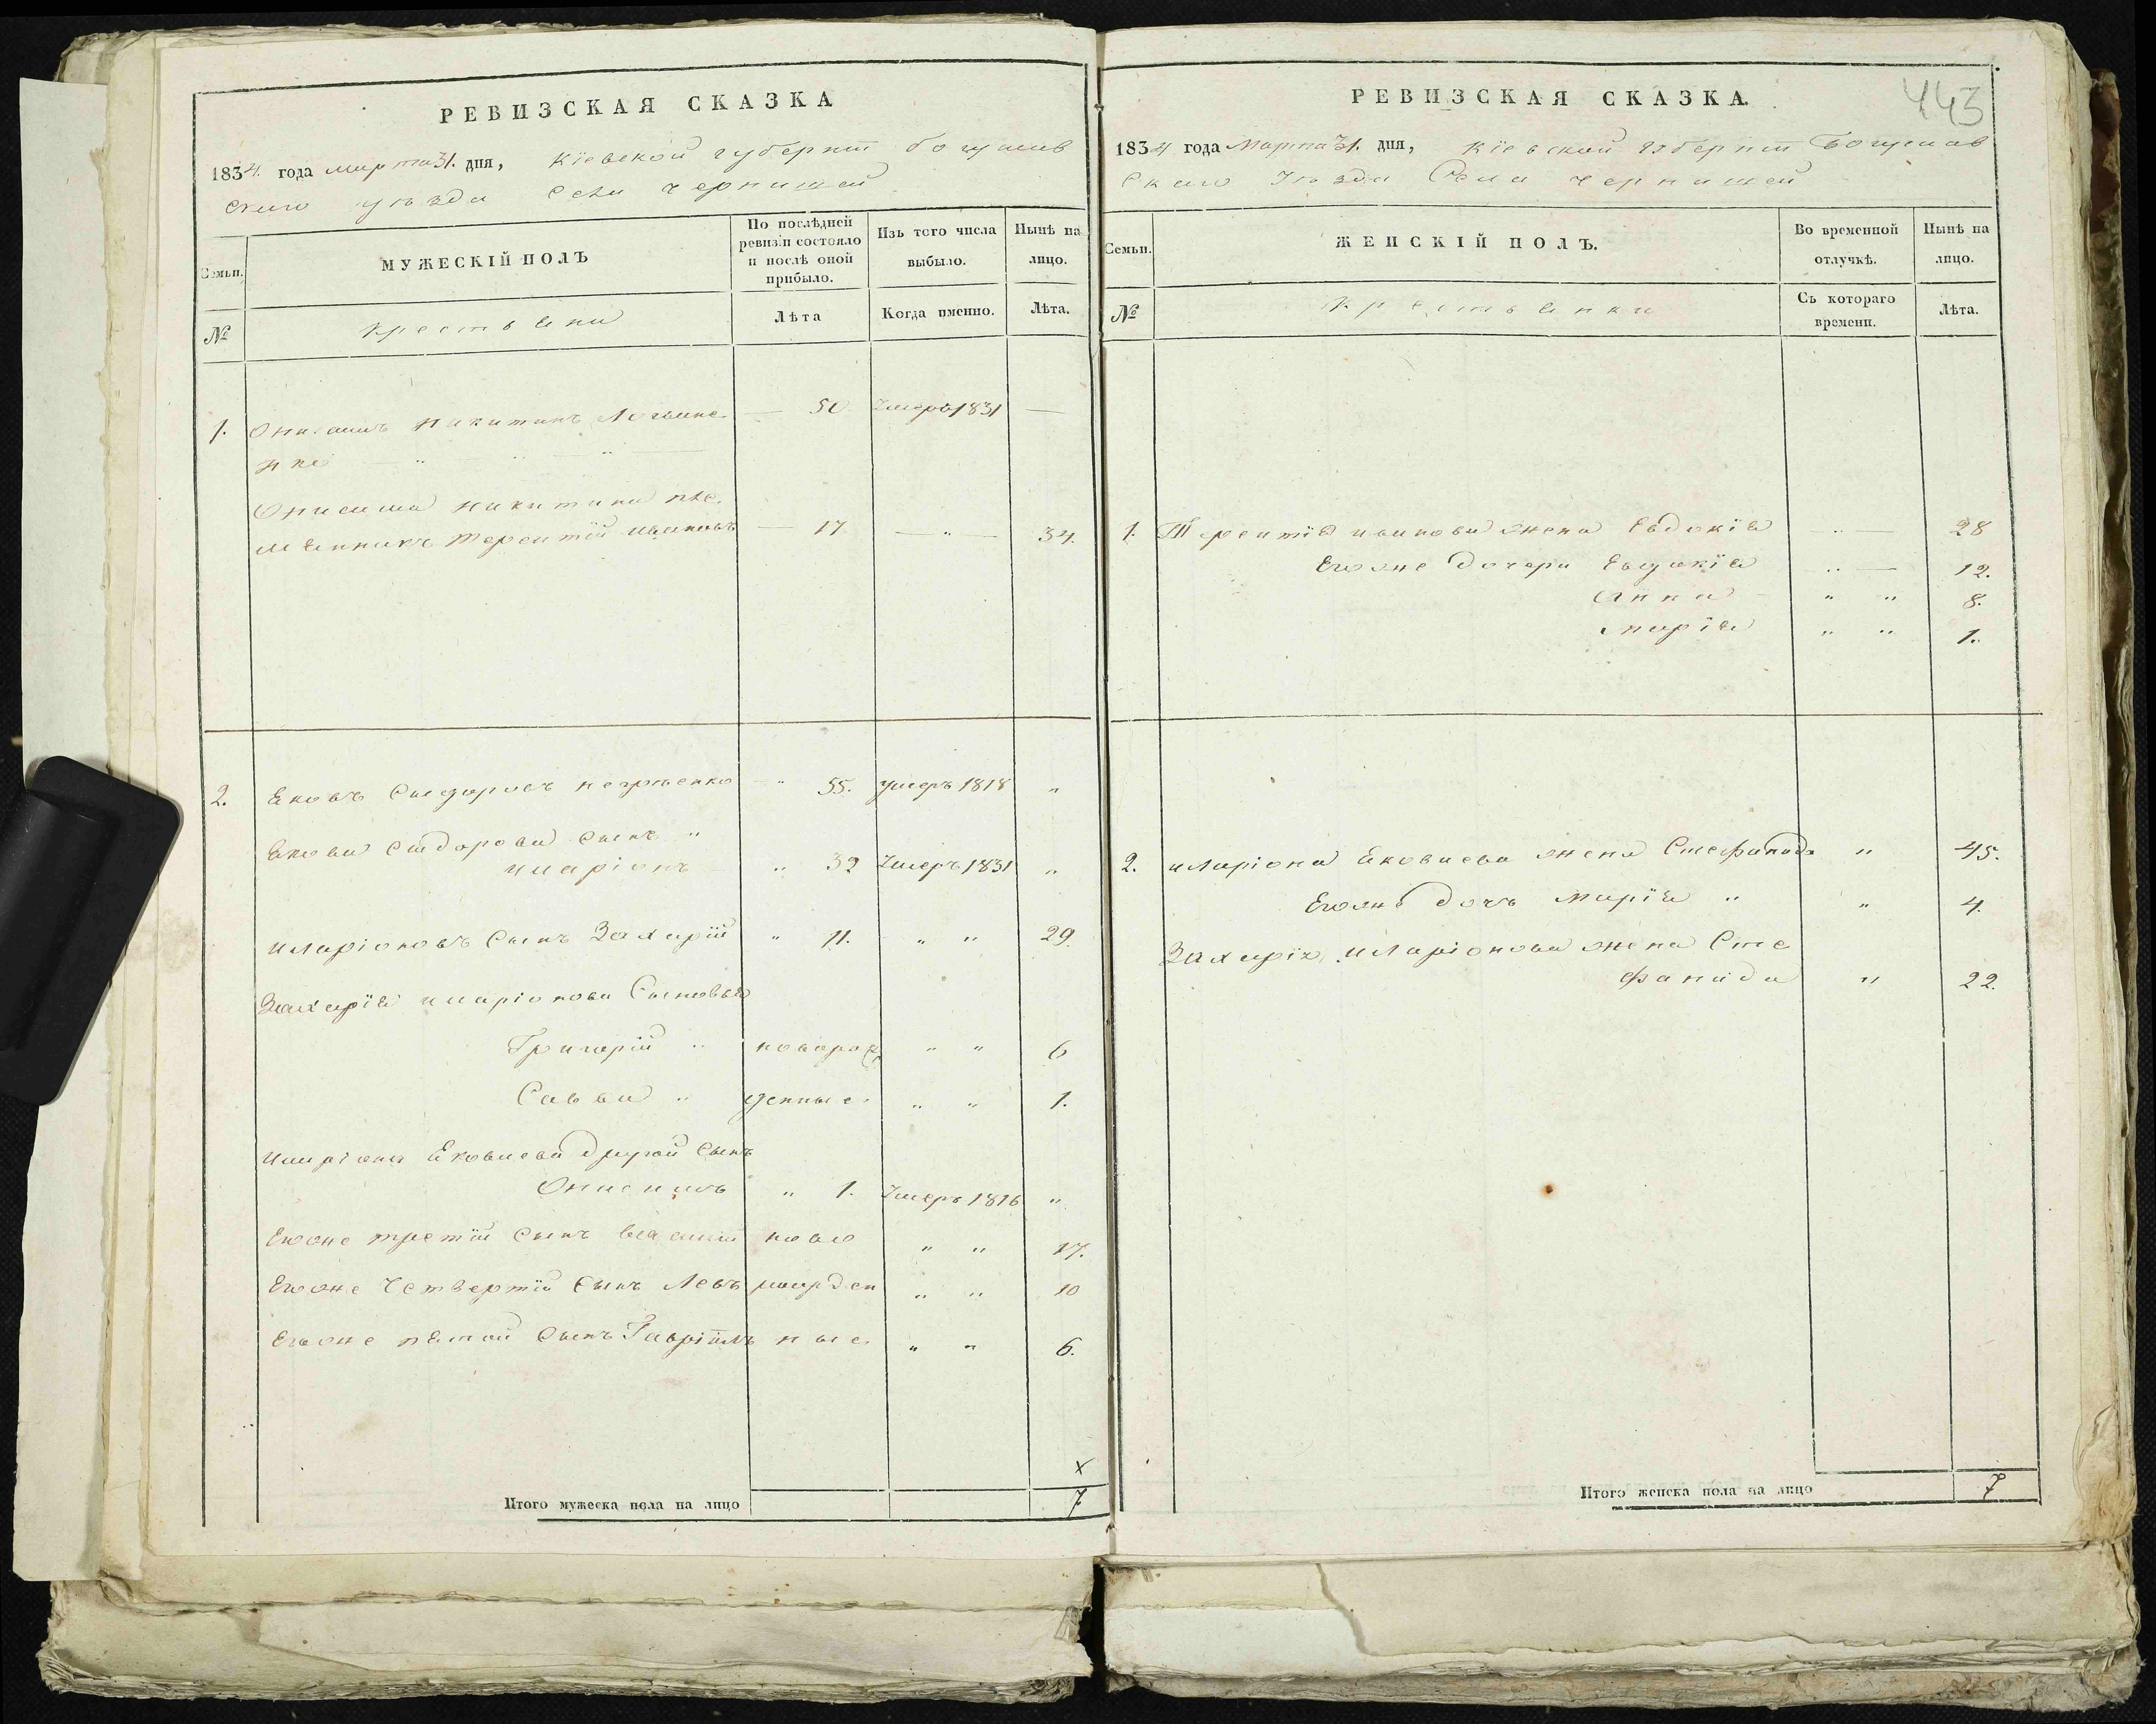 РЕВИЗСКАЯ СКАЗКА
1834. года марта 31. дня, Кіевской губерніи богуслав
скаго уѣзда села чернишей
Семьи.
МУЖЕСКІЙ ПОЛЪ
По послѣдней ревизіи состояло и послѣ оной прибыло.
Изъ того числа выбыло.
Нынѣ на лицо.
№
крестьяни
Лѣта
Когда именно.
Лѣта.
1. Онисимъ Никитинъ — 50 Умеръ 1831 —
нко
Онисима Никитина пле
мянникъ Терентій ивановъ — 17 — " — 34.
2. Яковъ Сидоровъ — " 55. умеръ 1818 "
Якова Сидорова сынъ "
иларіонъ " 32 Умеръ 1831 "
иларіоновъ сынъ Захарій " 11. " " 29.
Захарія иларіонова сыновья
Григорій " новоро " " 6
Савва " жденные " " 1.
иларіона Яковлева другой сынъ
Онисимъ " 1. Умеръ 1816 "
Егоже третій сынъ василій ново " " 17.
Егоже четвертій сынъ Левъ рожден " " 10
Егоже пятой сынъ Гавріилъ ные " " 6.
х
Итого мужеска пола на лицо 7
РЕВИЗСКАЯ СКАЗКА.
443
1834 года Марта 31. дня, Кіевской губерніи Богуслав
скаго уѣзда Села чернишей
Семьи.
ЖЕНСКІЙ ПОЛЪ.
Во временной отлучкѣ.
Нынѣ на лицо.
№
Крестьянки
Съ котораго времени.
Лѣта.
1. Терентія иванова жена Евдокія " — 28
Егоже дочери Евдокія " — 12.
Анна " " 8.
марія " " 1.
2. иларіона Яковлева жена Стефанида " 45.
Егоже дочь марія " " 4.
Захарія иларіонова жена Сте
фанида " 22.
Итого женска пола на лицо 7